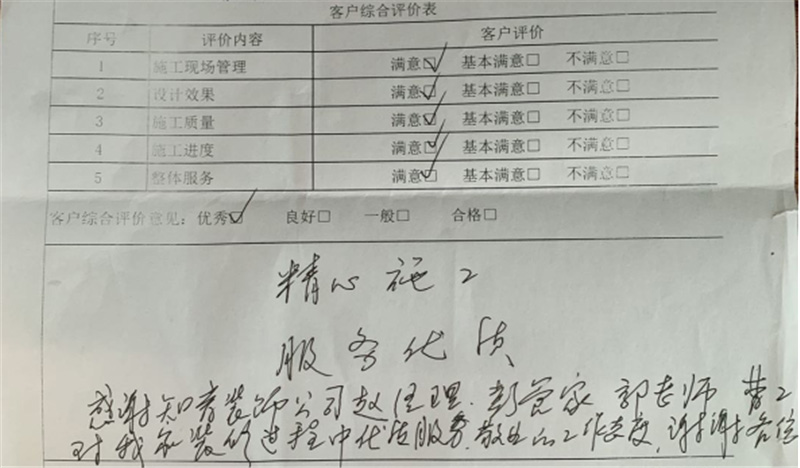 客户综合评价表
序号 评价内容 客户评价
1 施工现场管理 满意☑ 基本满意□ 不满意□
2 设计效果 满意☑ 基本满意□ 不满意□
3 施工质量 满意☑ 基本满意□ 不满意□
4 施工进度 满意☑ 基本满意□ 不满意□
5 整体服务 满意☑ 基本满意□ 不满意□
客户综合评价意见：优秀☑ 良好□ 一般□ 合格□
精心施工
服务优质
感谢知者装饰公司赵经理、彭管家 郭老师 曹工
对我家装修过程中优质服务、敬业的工作态度，谢谢各位